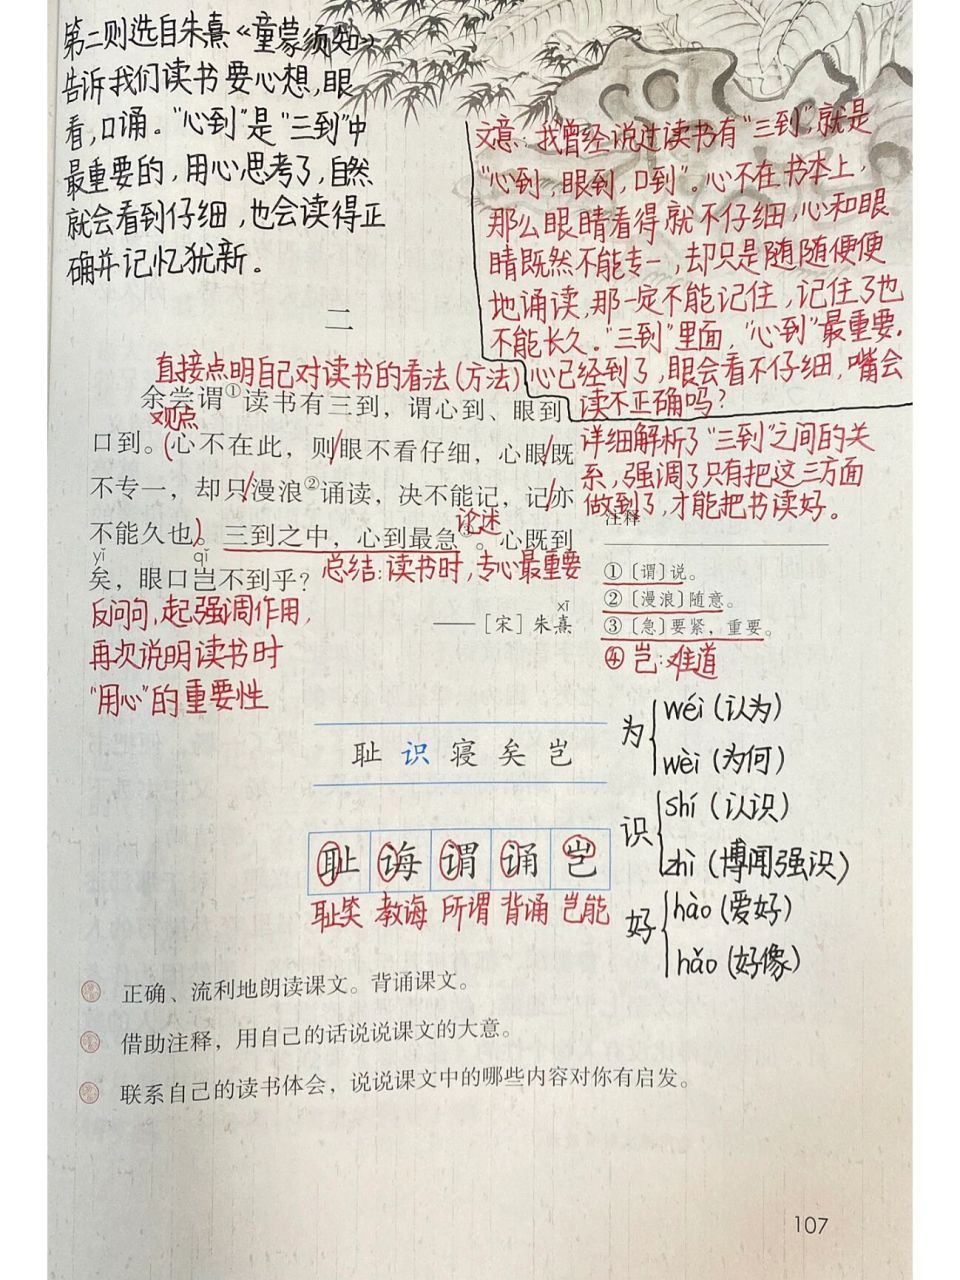 第二则选自朱熹《童蒙须知》
告诉我们读书要心想,眼
看,口诵。"心到"是"三到"中
最重要的,用心思考了,自然
就会看到仔细,也会读得正
确并记忆犹新。
文意:我曾经说过读书有"三到",就是
"心到,眼到,口到"。心不在书本上,
那么眼睛看得就不仔细,心和眼
睛既然不能专一,却只是随随便便
地诵读,那一定不能记住,记住了也
不能长久。"三到"里面,"心到"最重要.
心已经到了,眼会看不仔细,嘴会
读不正确吗?
二
直接点明自己对读书的看法(方法)
余尝谓①读书有三到,谓心到、眼到
观点
口到。(心不在此,则/眼不看仔细,心眼/既
不专一,却只/漫浪②诵读,决不能记,记/亦
不能久也)。三到之中,心到最急③。心既到
论述
yǐ qǐ
矣,眼口岂不到乎?
总结:读书时,专心最重要
反问句,起强调作用,
再次说明读书时
"用心"的重要性
xī
——[宋]朱熹
详细解析了"三到"之间的关
系,强调了只有把这三方面
做到了,才能把书读好。
注释
①〔谓〕说。
②〔漫浪〕随意。
③〔急〕要紧,重要。
④ 岂:难道
耻 识 寝 矣 岂
耻 诲 谓 诵 岂
耻笑 教诲 所谓 背诵 岂能
为 wéi (认为)
wèi (为何)
识 shí (认识)
zhì (博闻强识)
好 hào (爱好)
hǎo (好像)
正确、流利地朗读课文。背诵课文。
借助注释,用自己的话说说课文的大意。
联系自己的读书体会,说说课文中的哪些内容对你有启发。
107